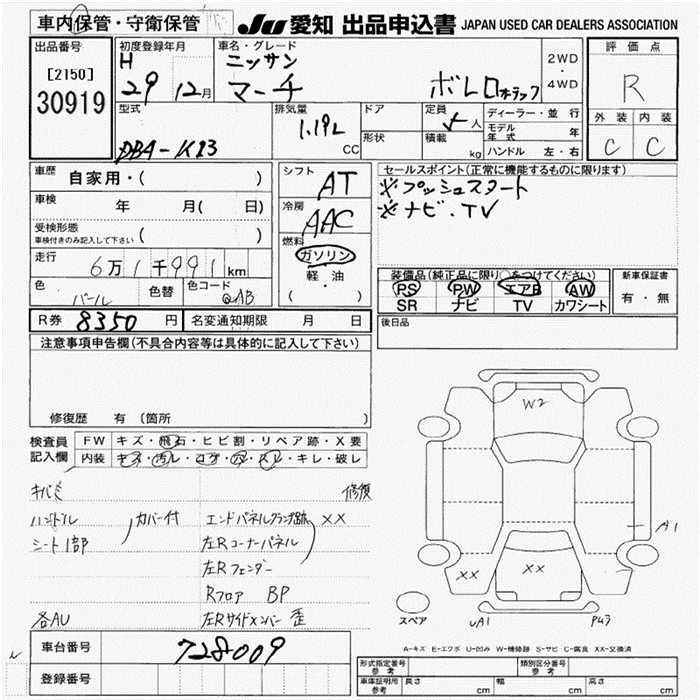 車内保管・守衛保管
JU 愛知 出品申込書 JAPAN USED CAR DEALERS ASSOCIATION
出品番号
[2150]
30919
初度登録年月
H
29 12月
車名・グレード
ニッサン
マーチ ボレロ
2WD
・
4WD
評価点
R
外装 内装
C C
型式
DBA-K13
排気量
1.19L
CC
ドア
形状
定員
5人
積載
kg
ディーラー・並行
モデル年式 年
ハンドル 左・右
車歴
自家用・( )
車検
年 月( 日)
受検形態
車検付きのみ記入して下さい ( )
走行
6万1千991km
色
パール
色替
色コード
QAB
シフト
AT
冷房
AAC
燃料
ガソリン
軽・油
( )
セールスポイント(正常に機能するものに限ります)
※プッシュスタート
※ナビ・TV
装備品(純正品に限り○をつけてください)
PS PW エアB AW
SR ナビ TV カワシート
新車保証書
有・無
後日品
R券 8350円 名変通知期限 月 日
注意事項申告欄(不具合内容等は具体的に記入して下さい)
修復歴 有(箇所
検査員
記入欄
FW キズ・飛石・ヒビ割・リペア跡・X要
内装 キズ・汚レ・コゲ・穴・スレ・キレ・破レ
キバミ 修復
ハンドル カバー付 エンドパネルクランプ跡 XX
シート1部 左Rコーナーパネル
左Rフェンダー
Rフロア BP
各AU 左Rサイドメンバー 歪
車台番号 728009
登録番号
W2
A1
XX
XX
スペア
A1
A-キズ E-エクボ U-凹み W-補修跡 S-サビ C-腐食 XX-交換済
形式指定番号
参考
類別区分番号
参考
車庫証明用
参考
長さ cm 幅 cm 高さ cm